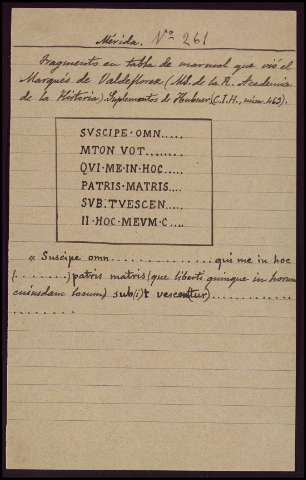 Mérida. Nº 261
Fragmento en tabla de marmol que vió el
Marqués de Valdeflores (Ms. de la R. Academia
de la Historia). Suplementos de Hubner (C.I.H., núm. 463).
SVSCIPE·OMN.....
MTON VOT........
QVI·ME·IN·HOC.....
PATRIS·MATRIS....
SVB.TVESCEN.....
II·HOC·MEVM·C....
« Suscipe omn.................. qui me in hoc
(........) patris matris (que liberti quinque in horum
cuiusdam locum) sub(i)t vescentur)..............
..........